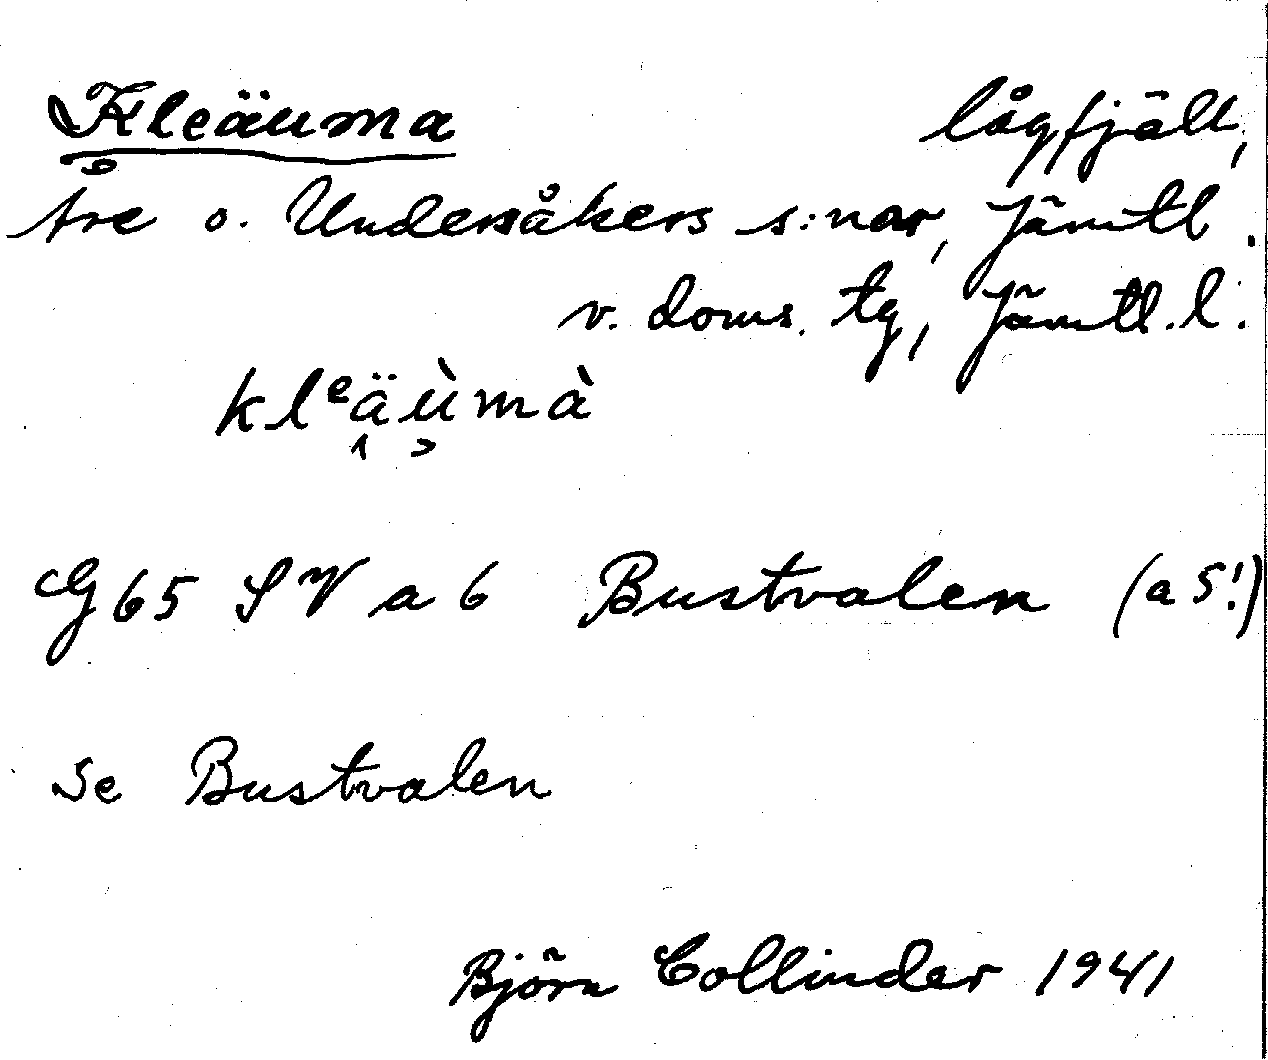 Kleäuma lågfjäll,
Åre o. Undersåkers s:nar, Jämtl.
v. doms. tg, Jämtl. l.
klᵉäùmà
G 65 SV a 6 Bustvalen (a 5!)
Se Bustvalen
Björn Collinder 1941